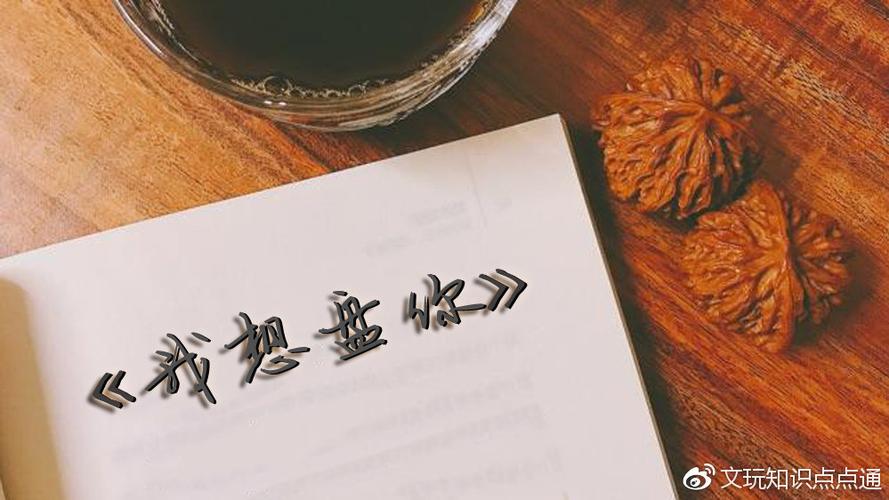 《我想盘你》
文玩知识点点通